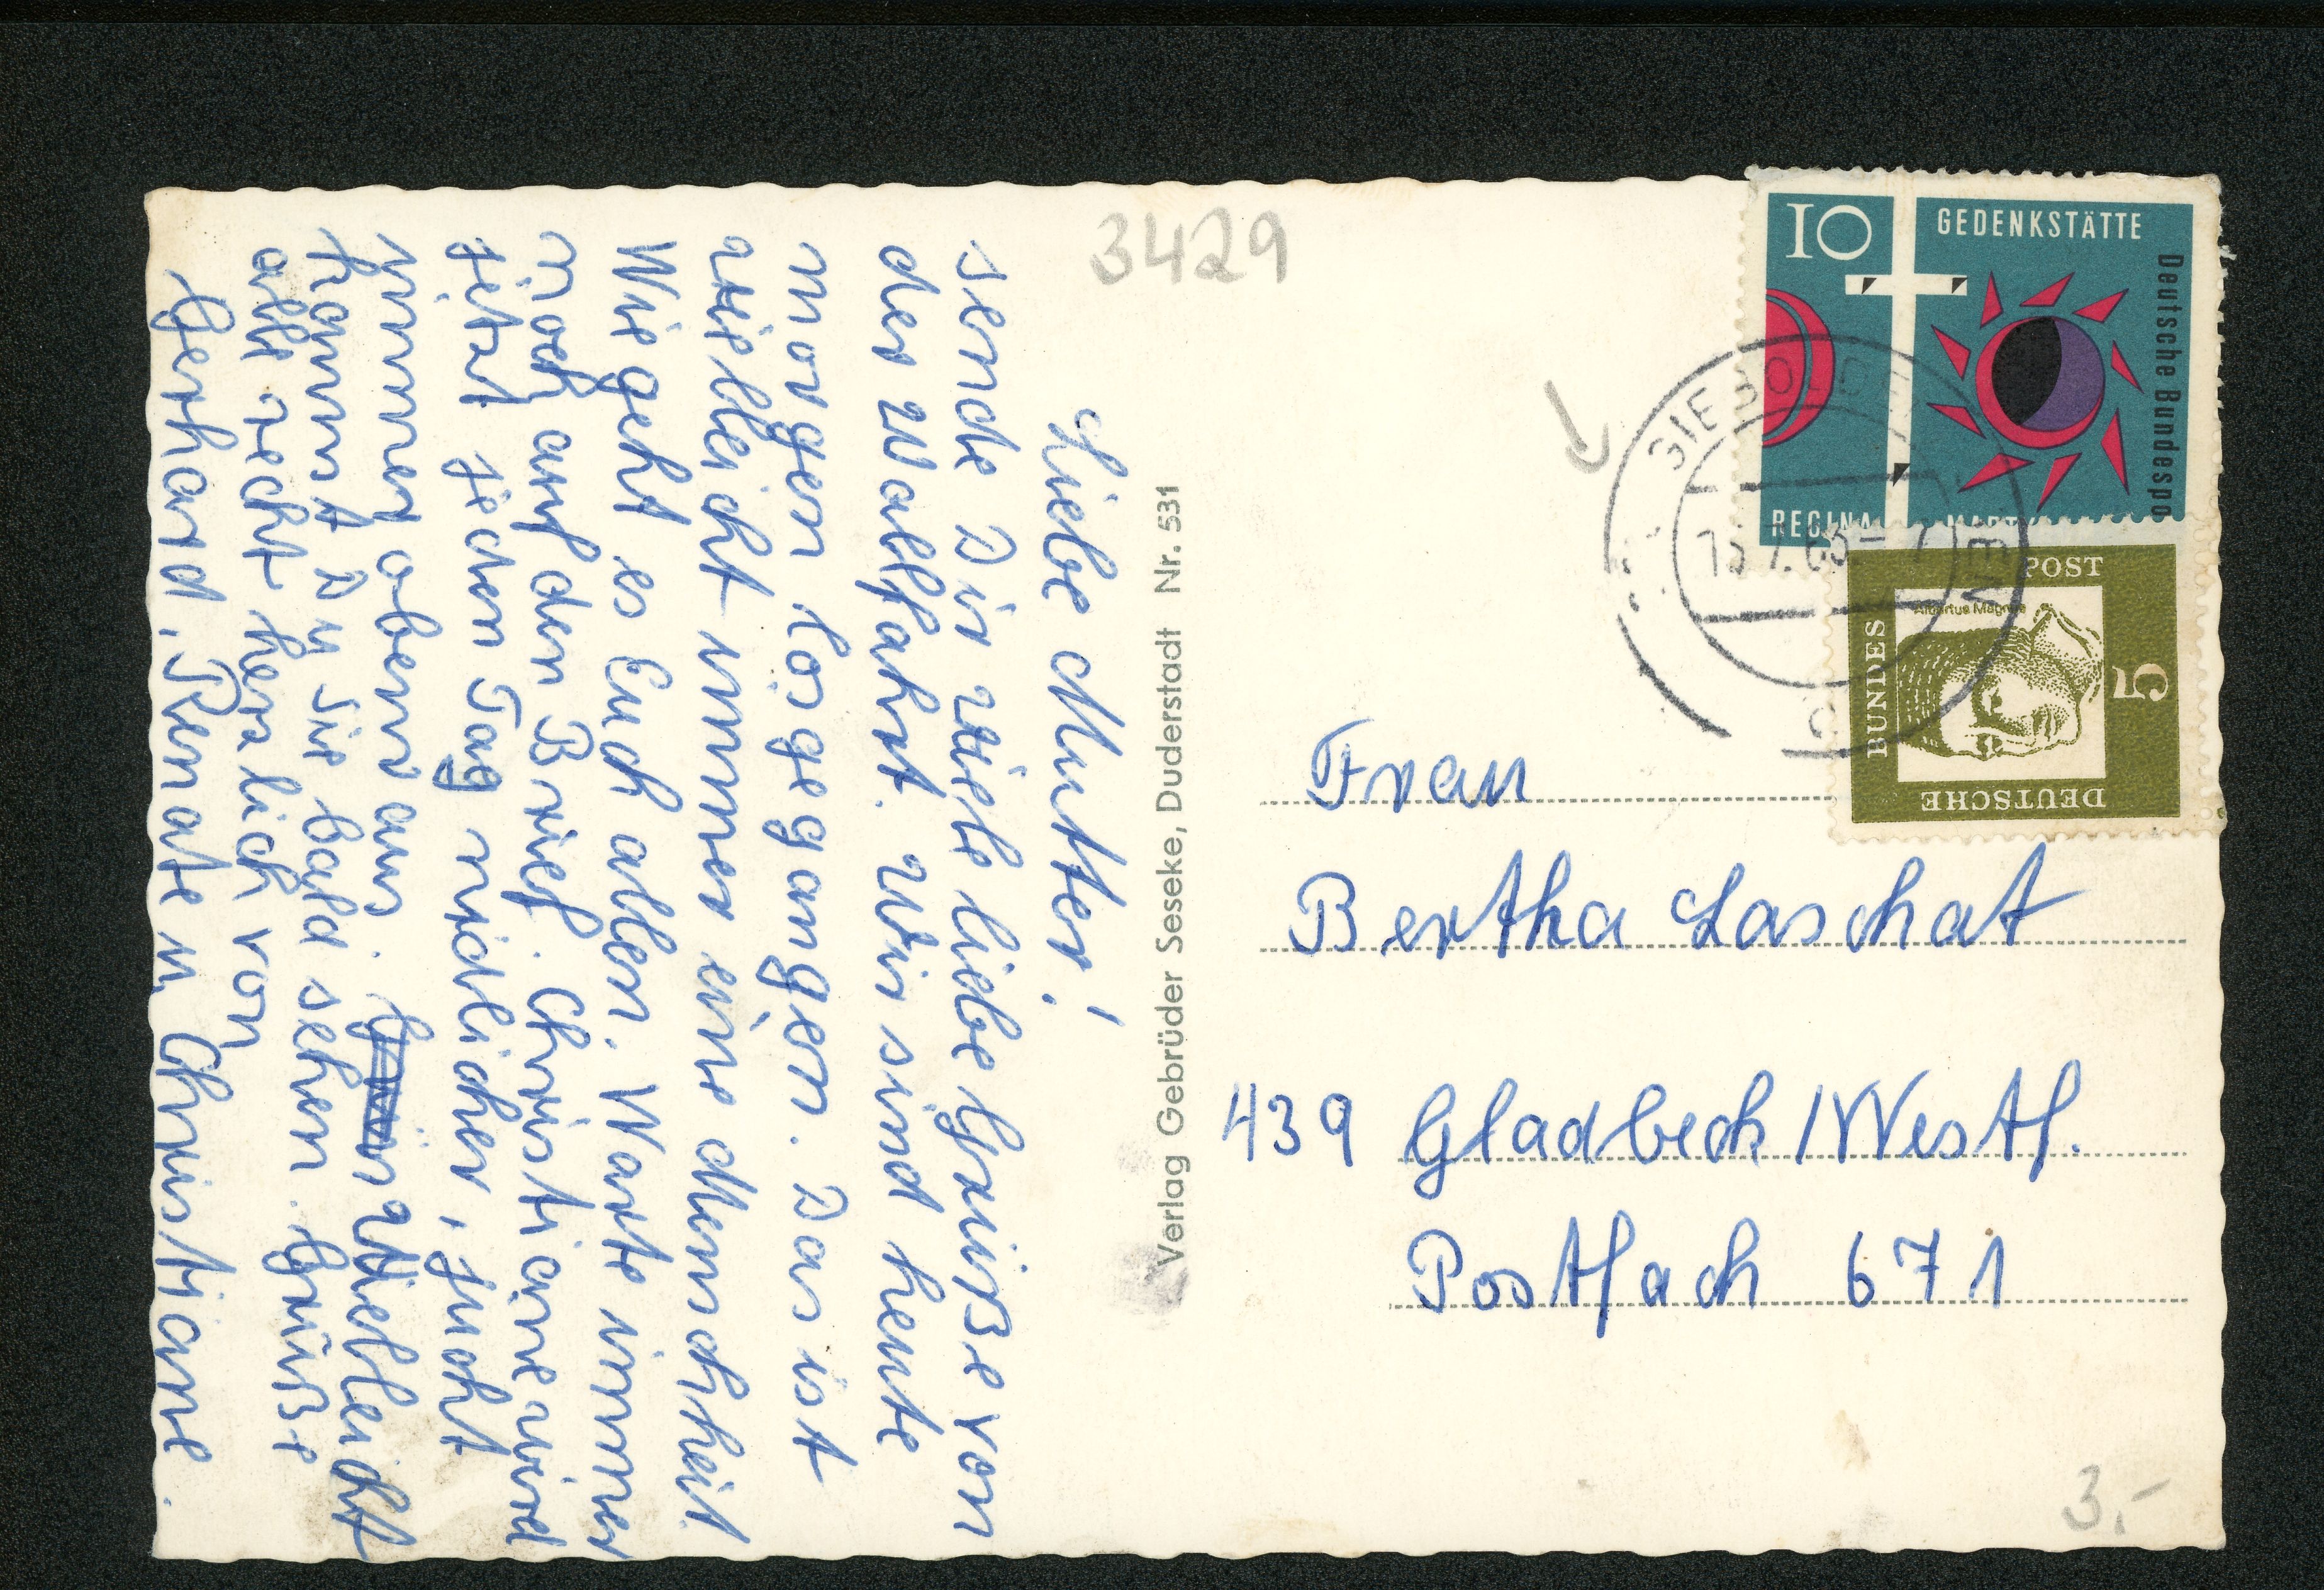 Liebe Mutter!
sende Dir viele liebe Grüße von
der Wallfahrt. Wir sind heute
morgen losgegangen. Das ist
vielleicht immer eine Menschheit
Wie geht es Euch allen. Warte immer
noch auf den Brief. Christiane wird
jetzt jeden Tag niedlicher, sucht
immer obenaus. vielleicht
kommst Du sie bald sehen. Grüße
alle recht herzlich von
Gerhard, Renate u Christiane.
3429
Verlag Gebrüder Seseke, Duderstadt Nr. 531
10
GEDENKSTÄTTE
Deutsche Bundespo
REGINA MARTY
SIEBOLD
63
DEUTSCHE
BUNDES
POST
Albertus Magnus
5
Frau
Bertha Laschat
439 Gladbeck / Westf.
Postfach 671
3.-